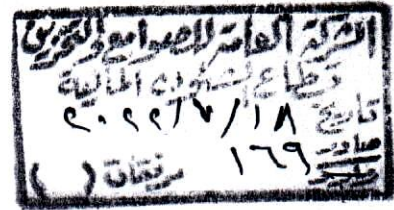 الشركة العامة للصوامع والتخزين
قطاع الشئون المالية
تاريخ ١٨/٧/٢٠٢٢
صادر ١٦٩
وارد مرفقات ( )